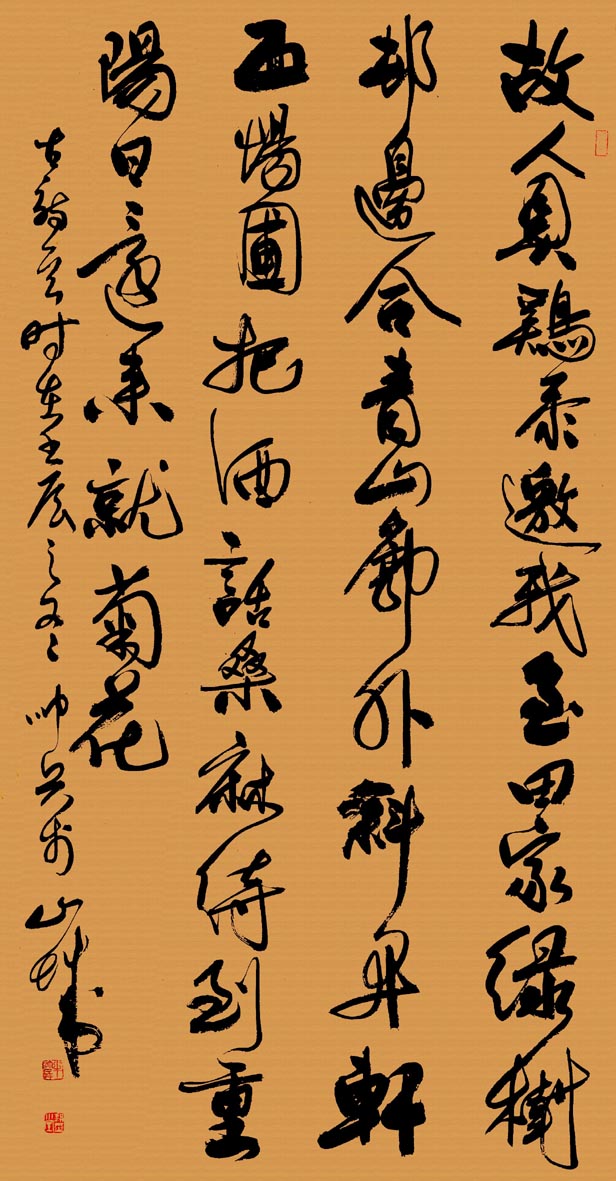 故人具鷄黍邀我至田家綠樹
邨邊合青山郭外斜開軒
面場圃把酒話桑麻待到重
陽日還來就菊花
古詩一首时在壬辰之冬帅兵於山城